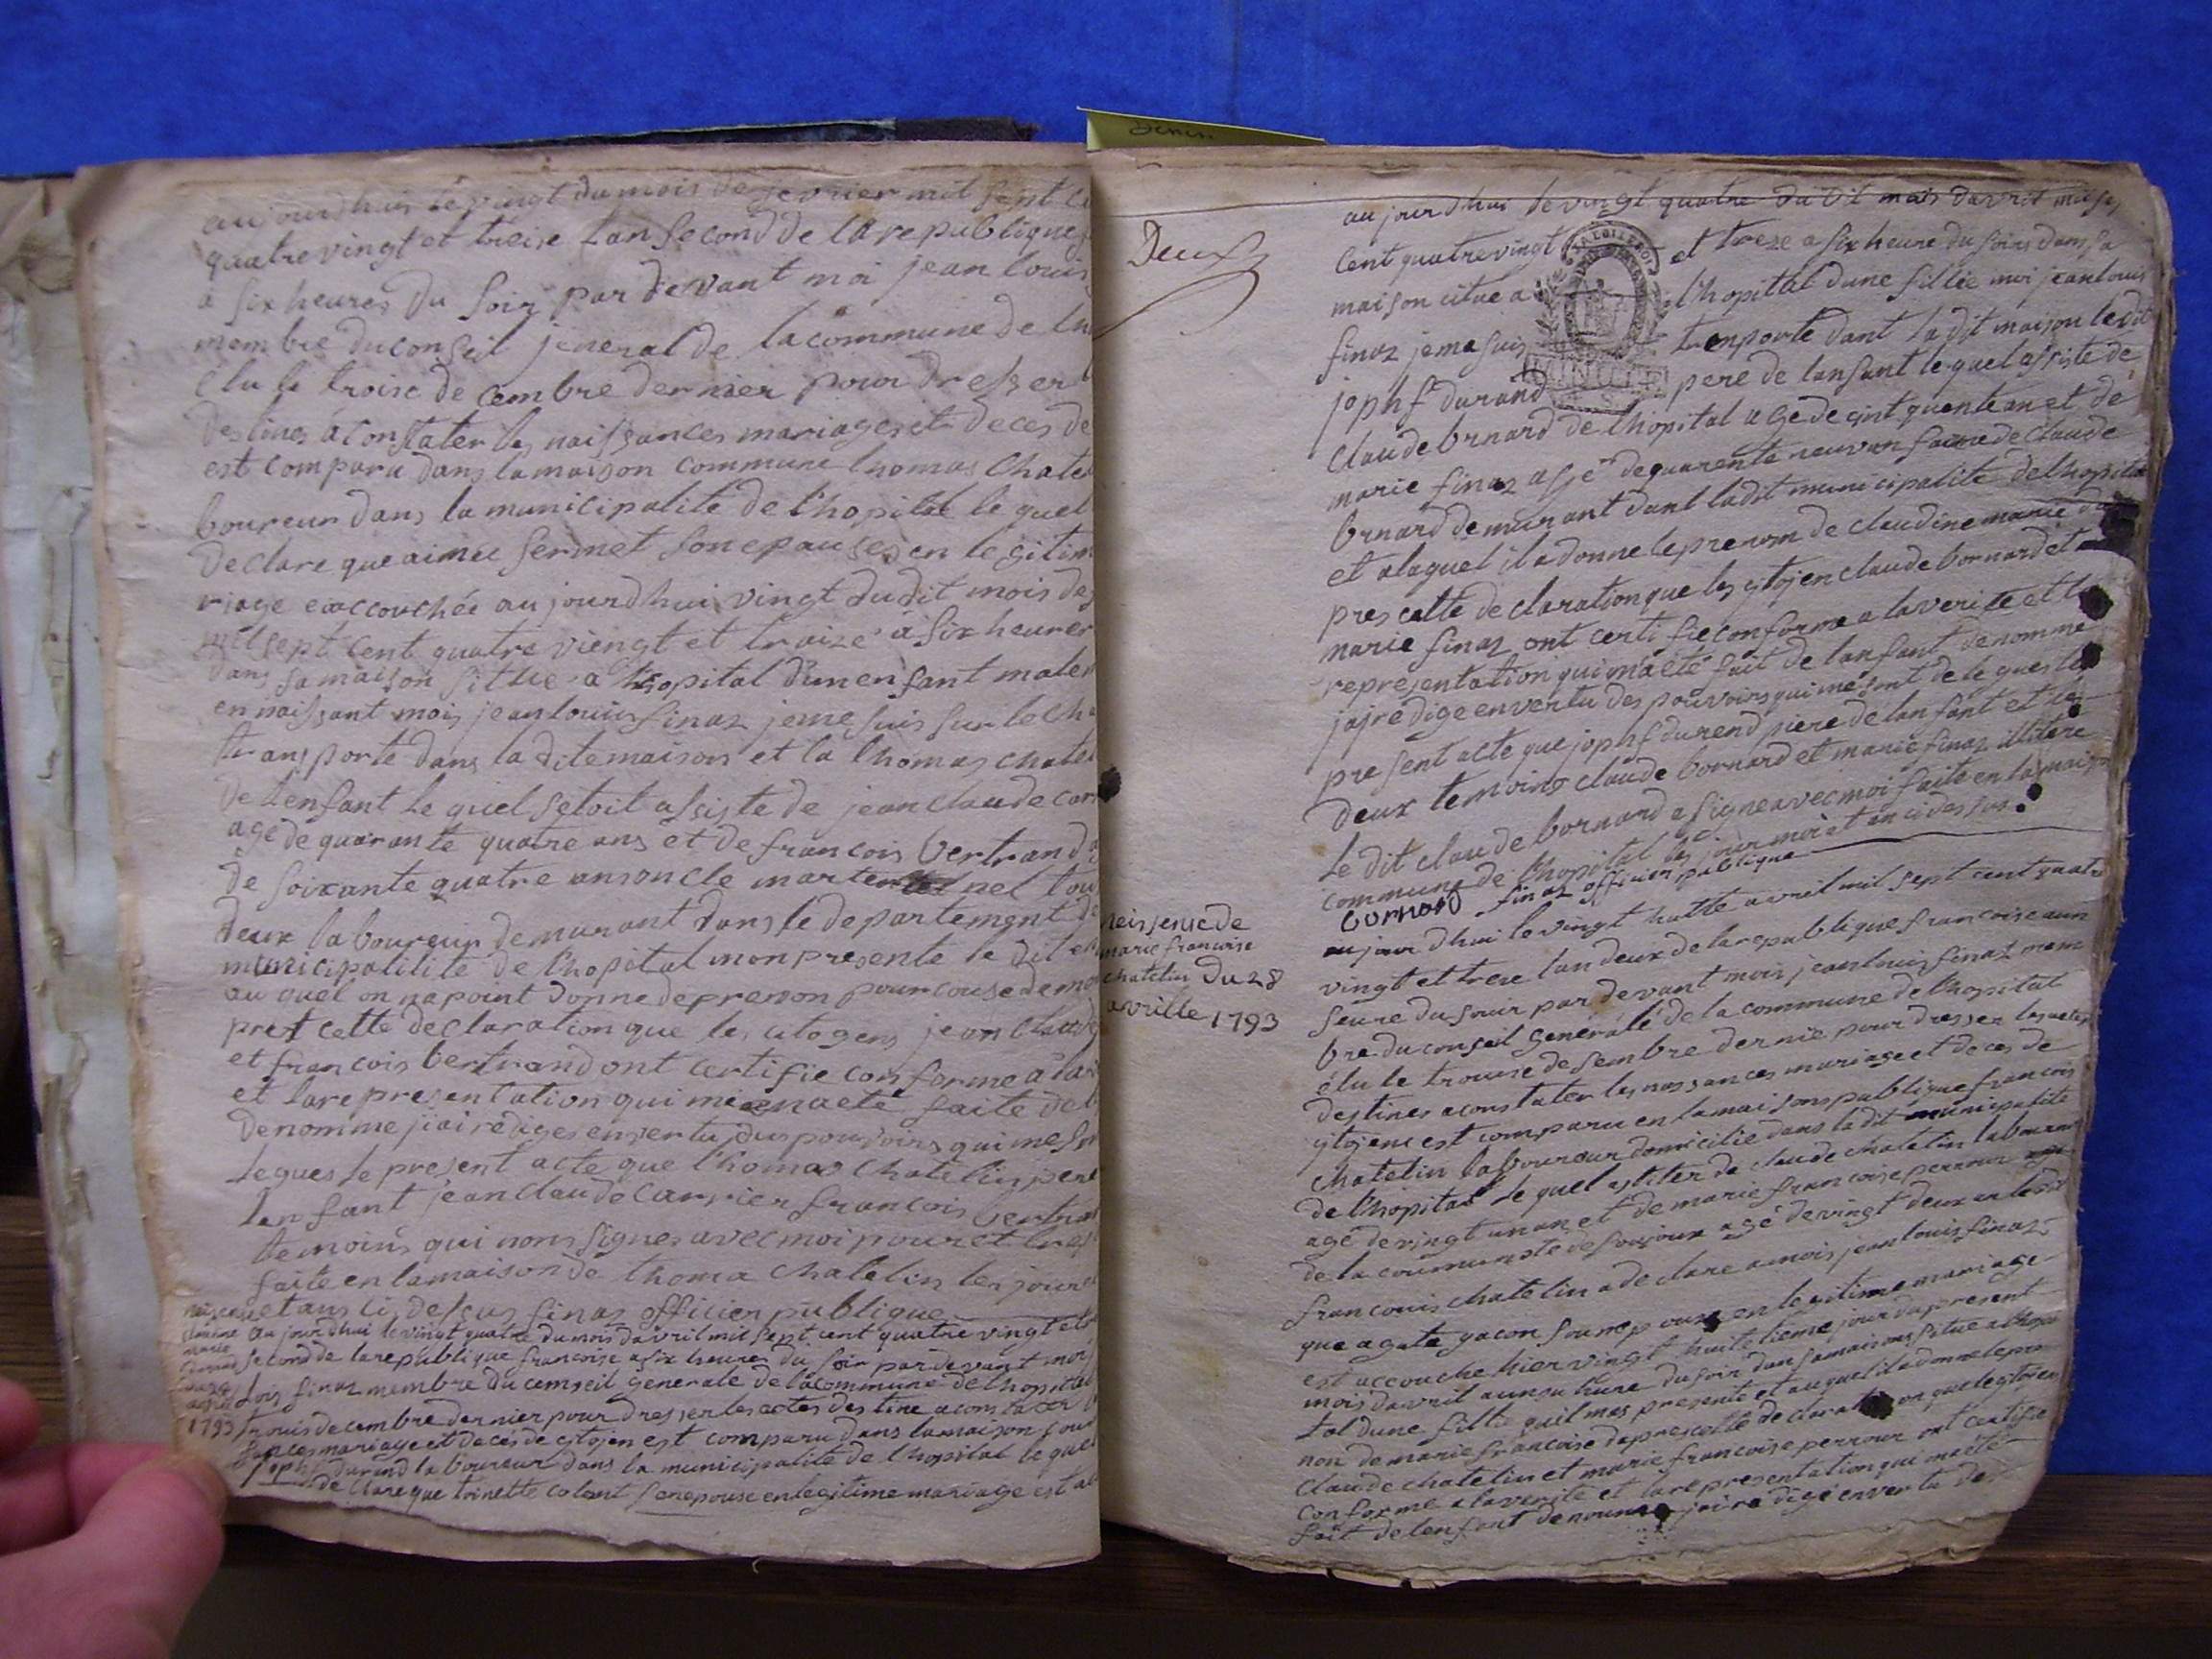 aujourdhui le vingt du mois de fevrier mil sept c
quatre vingt et treise lan second de la republique
a six heures du soir par devant moi jean louis
membre du conseil jeneral de la commune de
elu le troise decembre dernier pour dresser l
destines a constater les naissances mariages et deces de
est comparu dans la maison commune thomas Chate
boureur dans la municipalite de l'hopital le quel
declare que aimee sermet son epouses en legitim
riage eaccouchée aujourdhui vingt dudit mois de
mil sept cent quatre viengt et traize a six heurer
dans sa maison sittue a lhopital dun enfant male
en naissant mois jean louis finaz jeme suis sur le cha
transporte dans la dite maison et la thomas chatel
de lenfant le quel setoit assiste de jean claude car
age de quarante quatre ans et de francois bertrand
de soixante quatre ans oncle marternel tou
deux laboureur demurant dans le departement de
municipalilite de l'hopital mon presente le dit e
au quel on na point donne de prenon pour couse de mo
prest cette declaration que les citogens jean claude
et francois bertrand ont certifie conforme a la
et la representation qui mien aete faite de l
denomme jiai rediges en vertu dus pouvoirs qui me s
legues le present acte que thomas chatelin pere
lenfant jean claude carrier francois bertran
temoins qui nons signes avec moi pour et
faite en la maison de thoma chatelin les jour
et ans ci desus finaz officier publique
marie
1793
aujourdhui le vingt quatre du mois davril mil sept cent quatre vingt et
second de la republique francoise a six heures du soir par devant moi
lois finaz membre du conseil generale de la commune de lhopital
trouis decembre dernier pour dresser les actes destine a constater l
sances mariage et decés de citojen est comparu dans la maison com
joph durand laboureur dans la municipalite de l'hopital le quel
declare que toinette colont son epouse en legitime mariage est a
Deux
aujourdhui le vingt quatre du dit mois davril mil sep
cent quatre vingt et treze a six heure du soir dans sa
maison citue a lhopital dune fillie moi jean louis
finaz jeme suis tranporte dant la dit maison le dit
jophf durand pere de lanfant le quel assiste de
MINUTE
claude brnard de lhopital age de cint quente an et de
marie finaz asje de quarente neuvan fame de claude
brnard demurant dant ladit municipalite de lhopital
et alaquel il a donne le prenom de claudine marie
pres cette declaration que les sitojen claude bornard et
marie finaz ont certi fie conforme a la verite et la
representation qui ma été fait de lanfant denomme
jai redige en vertu des pouvoirs qui me sont delegues le
present acte que jophf durend piere de lanfant et les
deux temoins claude bornard et marie finaz illitere
le dit claude bornard a signe avec moi faite en la maison
commune de lhopital les jour moi et an ci dessus.
bornard finaz officier publique
neisense de
marie francoise
chatelin du 28
avrille 1793
aujour dhui le vingt huitte avril mil sept cent quatre
vingt et treze lan deux de la republique francoise a un
seure du souir par devant mois jean louis finaz mem
bre du conseil Generale de la commune de l'hopital
élu le trouise desembre dernie pour dresser les actes
destines a constater les nassances mariage et deces de
sytojens est comparu en la maisons publique francois
chatelin laboureur domicilie dans la dit municipalite
de l'hopital le quel assister de claude chatelin laboureur
agé de vingt un an et de marie francoise perrour
de la coumunote de soujoux agé de vingt deux an le dit
francouis chatelin a declare a mois jean louis finaz
que agate gacon son epouse en legitime mariage
est accouche hier vingt huitetieme jour du present
mois davril a une hure du soir dans sa maisons situe a lhopi
tal dune fillie quil mas presente et auquel il a donne le pre
non de marie francoise dapres cette declaration que le sitoiens
Claude chatelin et marie francoise perrour ont certifie
conforme a la verite et la representation qui ma ete
fait de lenfant denomme jai redige en vertu de